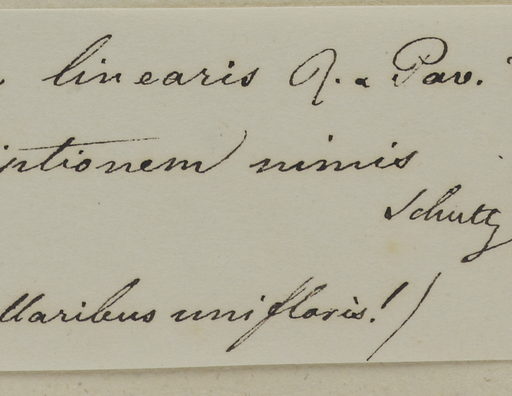 linearis R. & Pav.
iptionem nimis
Schultz
llaribus unifloris!)